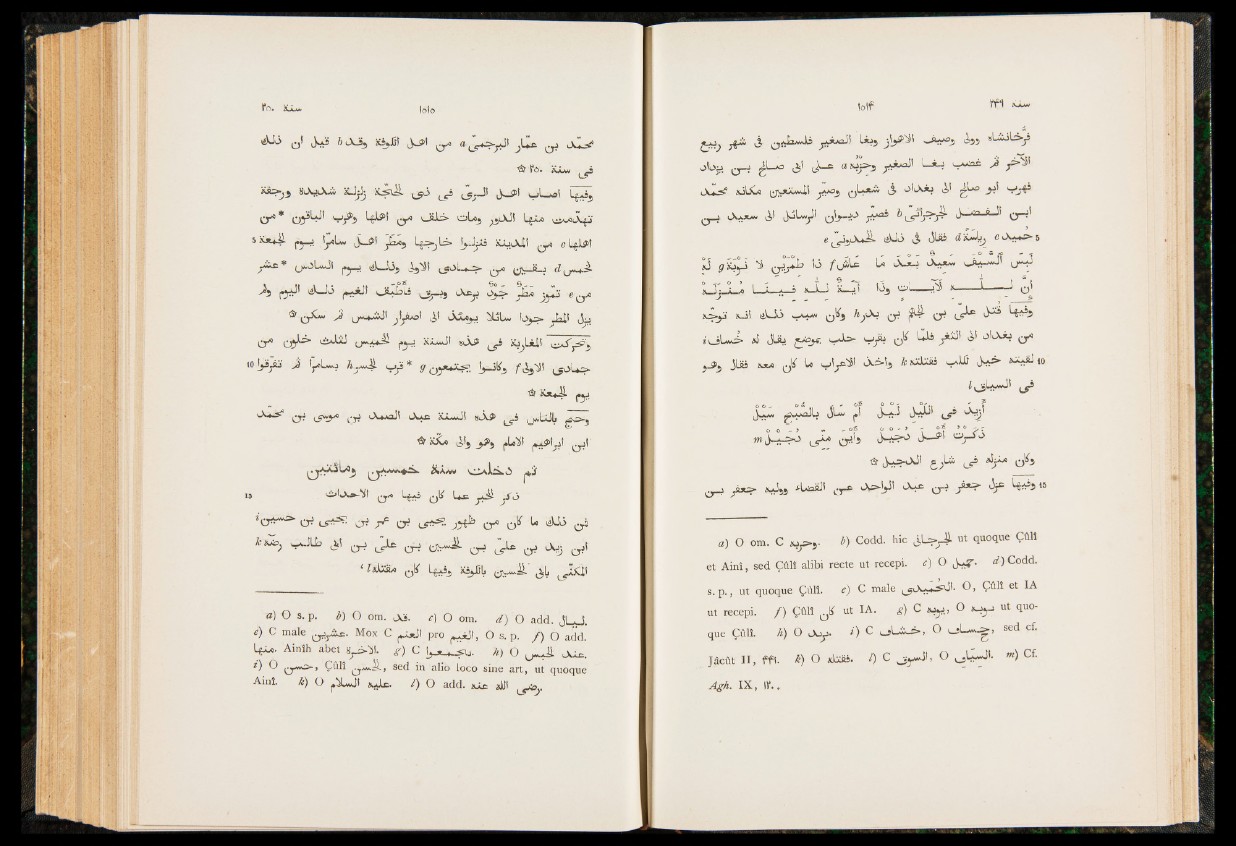 سنة ٢٤٩ ١٥١٤
فرخانشاه وولى وصيف الاهواز وبغا الصغير فلسطين فى شهر ربيع
الآخر ثم غضب بغا الصغير وحزبه a على ابى صالح بن يزداد
فهرب ابو صالح الى بغداد فى شعبان وصيّر المستعين مكانه محمّد
ابن الفضل الجرجرائىّ b فصيّر ديوان الرسائل الى سعيد بن
5 حُمَيد c رِياسةً d فقال فى ذلك الحَمدونىّ e
لَبِسَ ٱلسَّيْفَ سَعِيدٌ بَعْدَ ما عاشَ f ذا طِمْرَيْنِ لا نَوْبَةَ g لَهْ
إنَّ لِلّٰهِ لَآيَاتٍ وذا آيَةٌ لِلّٰهِ فِينَا مُنْزَلَهْ
وفيها قُتل علىّ بن الجَهْم بن بدر h وكان سبب ذلك انه توجّه
من بغداد الى الثغر فلمّا كان بقرب حلب بموضع يقال له خُساف i
10 لقيَتْه خيل لكَلْب فقتلته k واخذ الاعراب ما كان معه فقال وهو
فى السياق l
أَزِيدَ فى اللَّيْلِ لَيْلُ أَمْ سَالَ بِالصُّبْحِ سَيْلُ
ذَكَرْتُ أَهْلَ دُجَيْلٍ وَأَيْنَ مِنّى دُجَيْلُ m
وكان منزله فى شارع الدجيل ۞
15 وفيها عزل جعفر بن عبد الواحد عن القضاء ووليه جعفر بن
a) O om. C وحربه. b) Codd. hic الجرجانى ut quoque Çûlî
et Ainî, sed Çûlî alibi recte ut recepi. c) O جميل. d) Codd.
s. p., ut quoque Çûlî. e) C male النحمدى. O, Çûlî et IA
ut recepi. f) Çûlî كان ut IA. g) C يوبه, O بويه ut quo-
que Çûlî. h) O يزيد. i) C خشاف, O حساف, sed cf.
Jâcût II, ٤٤١. k) O فقتله. l) C السوق, O السياق. m) Cf.
Agh. IX, ١٢٠.
سنة ٢٥٠ ١٥١٥
محمّد بن عمّار البرجمىّ a من اهل الكوفة وقد b قيل ان ذلك
فى سنة ٢٥٠ ۞
وفيها اصاب اهل الرىّ فى ذى الحجّة زلزلة شديدة ورجفة
تهدّمت منها الدور ومات خلق من اهلها وهرب الباقون *من
5 اهلها c من المدينة فنزلوا خارجها ومُطر اهل سامرّا يوم الجمعة
لخمس d بقين من جمادى الاولى وذلك يوم السادس *عشر
من e تموز مَطَرٌ جَوْدٌ برعد وبرق فأَطْبَقَ الغيم ذلك اليوم ولم
يزل المطر جودا سائلا يومئذ الى اصفرار الشمس ثم سكن ۞
وتحركت المغاربة فى هذه السنة يوم الخميس لثلث خلون من
10 جمادى الاولى f وكانوا يجتمعون g *قرب الجسر h بسامرّا ثم تفرّقوا
يوم الجمعة ۞
وحجّ بالناس فى هذه السنة عبد الصمد بن موسى بن محمّد
ابن ابراهيم الامام وهو والى مكّة ۞
ثم دخلت سنة خمسين ومائتين
15 ذكر الخبر عما كان فيها من الاحداث
فمن ذلك ما كان من ظهور يحيى بن عمر بن يحيى بن حسين i
ابن زيد بن علىّ بن الحسين بن علىّ بن ابى طالب رضّه k
المكنّى بابى الحسين بالكوفة وفيها كان مقتله l،
a) O s. p. b) O om. قد. c) O om. d) O add. ليال.
e) C male عشرين. Mox C النعم pro الغيم, O s. p. f) O add.
منها. Ainîh abet الاخرة. g) C تجمعوا. h) O عند الحبس.
i) O حسن, Çûlî الحسن, sed in alio loco sine art, ut quoque
Ainî. k) O عليه السلام. l) O add. رضى الله عنه.